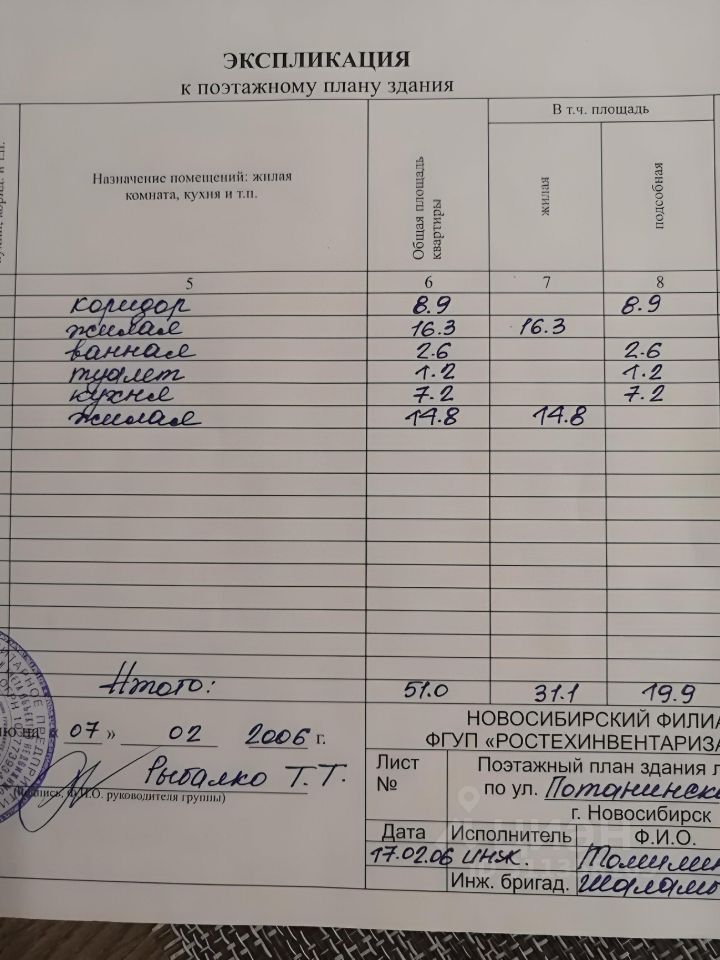 ЭКСПЛИКАЦИЯ
к поэтажному плану здания
Назначение помещений: жилая
комната, кухня и т.п.
Общая площадь
квартиры
В т.ч. площадь
жилая
подсобная
5 6 7 8
коридор 8.9 8.9
жилая 16.3 16.3
ванная 2.6 2.6
туалет 1.2 1.2
кухня 7.2 7.2
жилая 14.8 14.8
Итого: 51.0 31.1 19.9
на « 07 » 02 2006 г.
Рыбалко Т.Т.
(подпись, Ф.И.О. руководителя группы)
НОВОСИБИРСКИЙ ФИЛИА
ФГУП «РОСТЕХИНВЕНТАРИЗА
Лист
№
Поэтажный план здания л
по ул. Потанинска
г. Новосибирск
Дата Исполнитель Ф.И.О.
17.02.06 инж. Томилин
Инж. бригад. Шалам